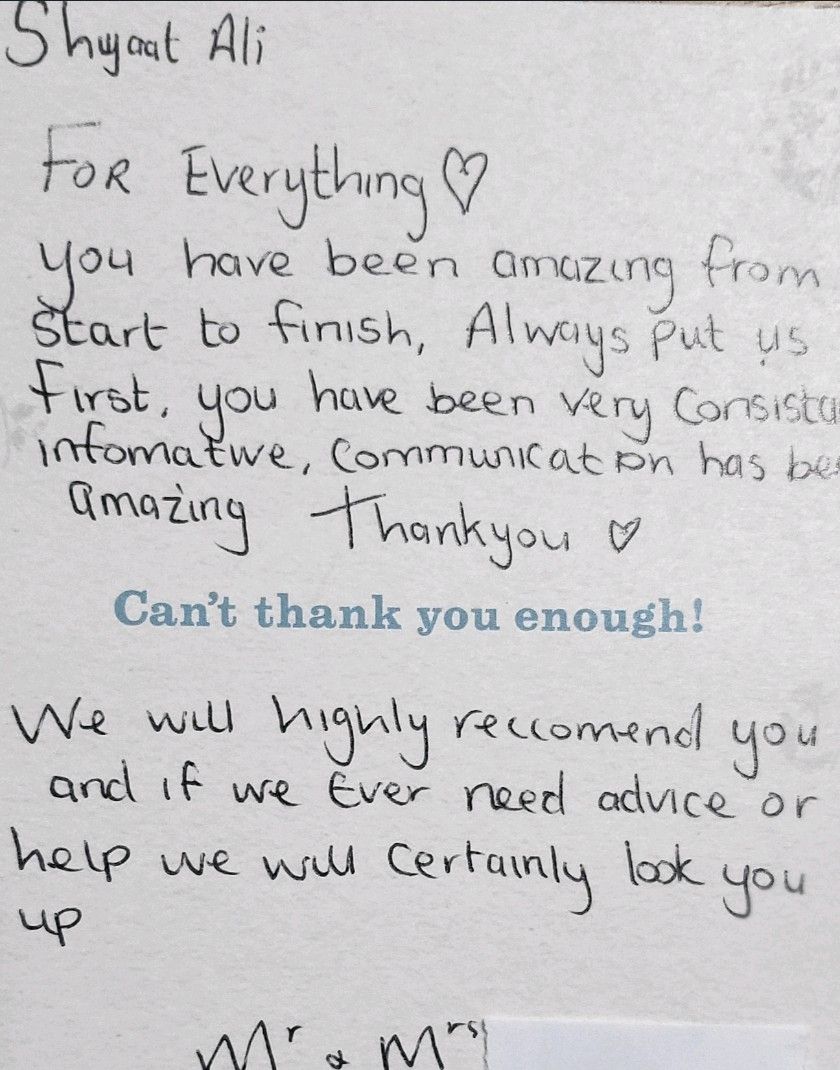 Shyaat Ali
FOR Everything
you have been amazing from
start to finish, Always put us
first, you have been very Consista
infomative, Communication has be
amazing Thankyou
Can't thank you enough!
We will highly reccomend you
and if we Ever need advice or
help we will Certainly look you
up
Mr & Mrs